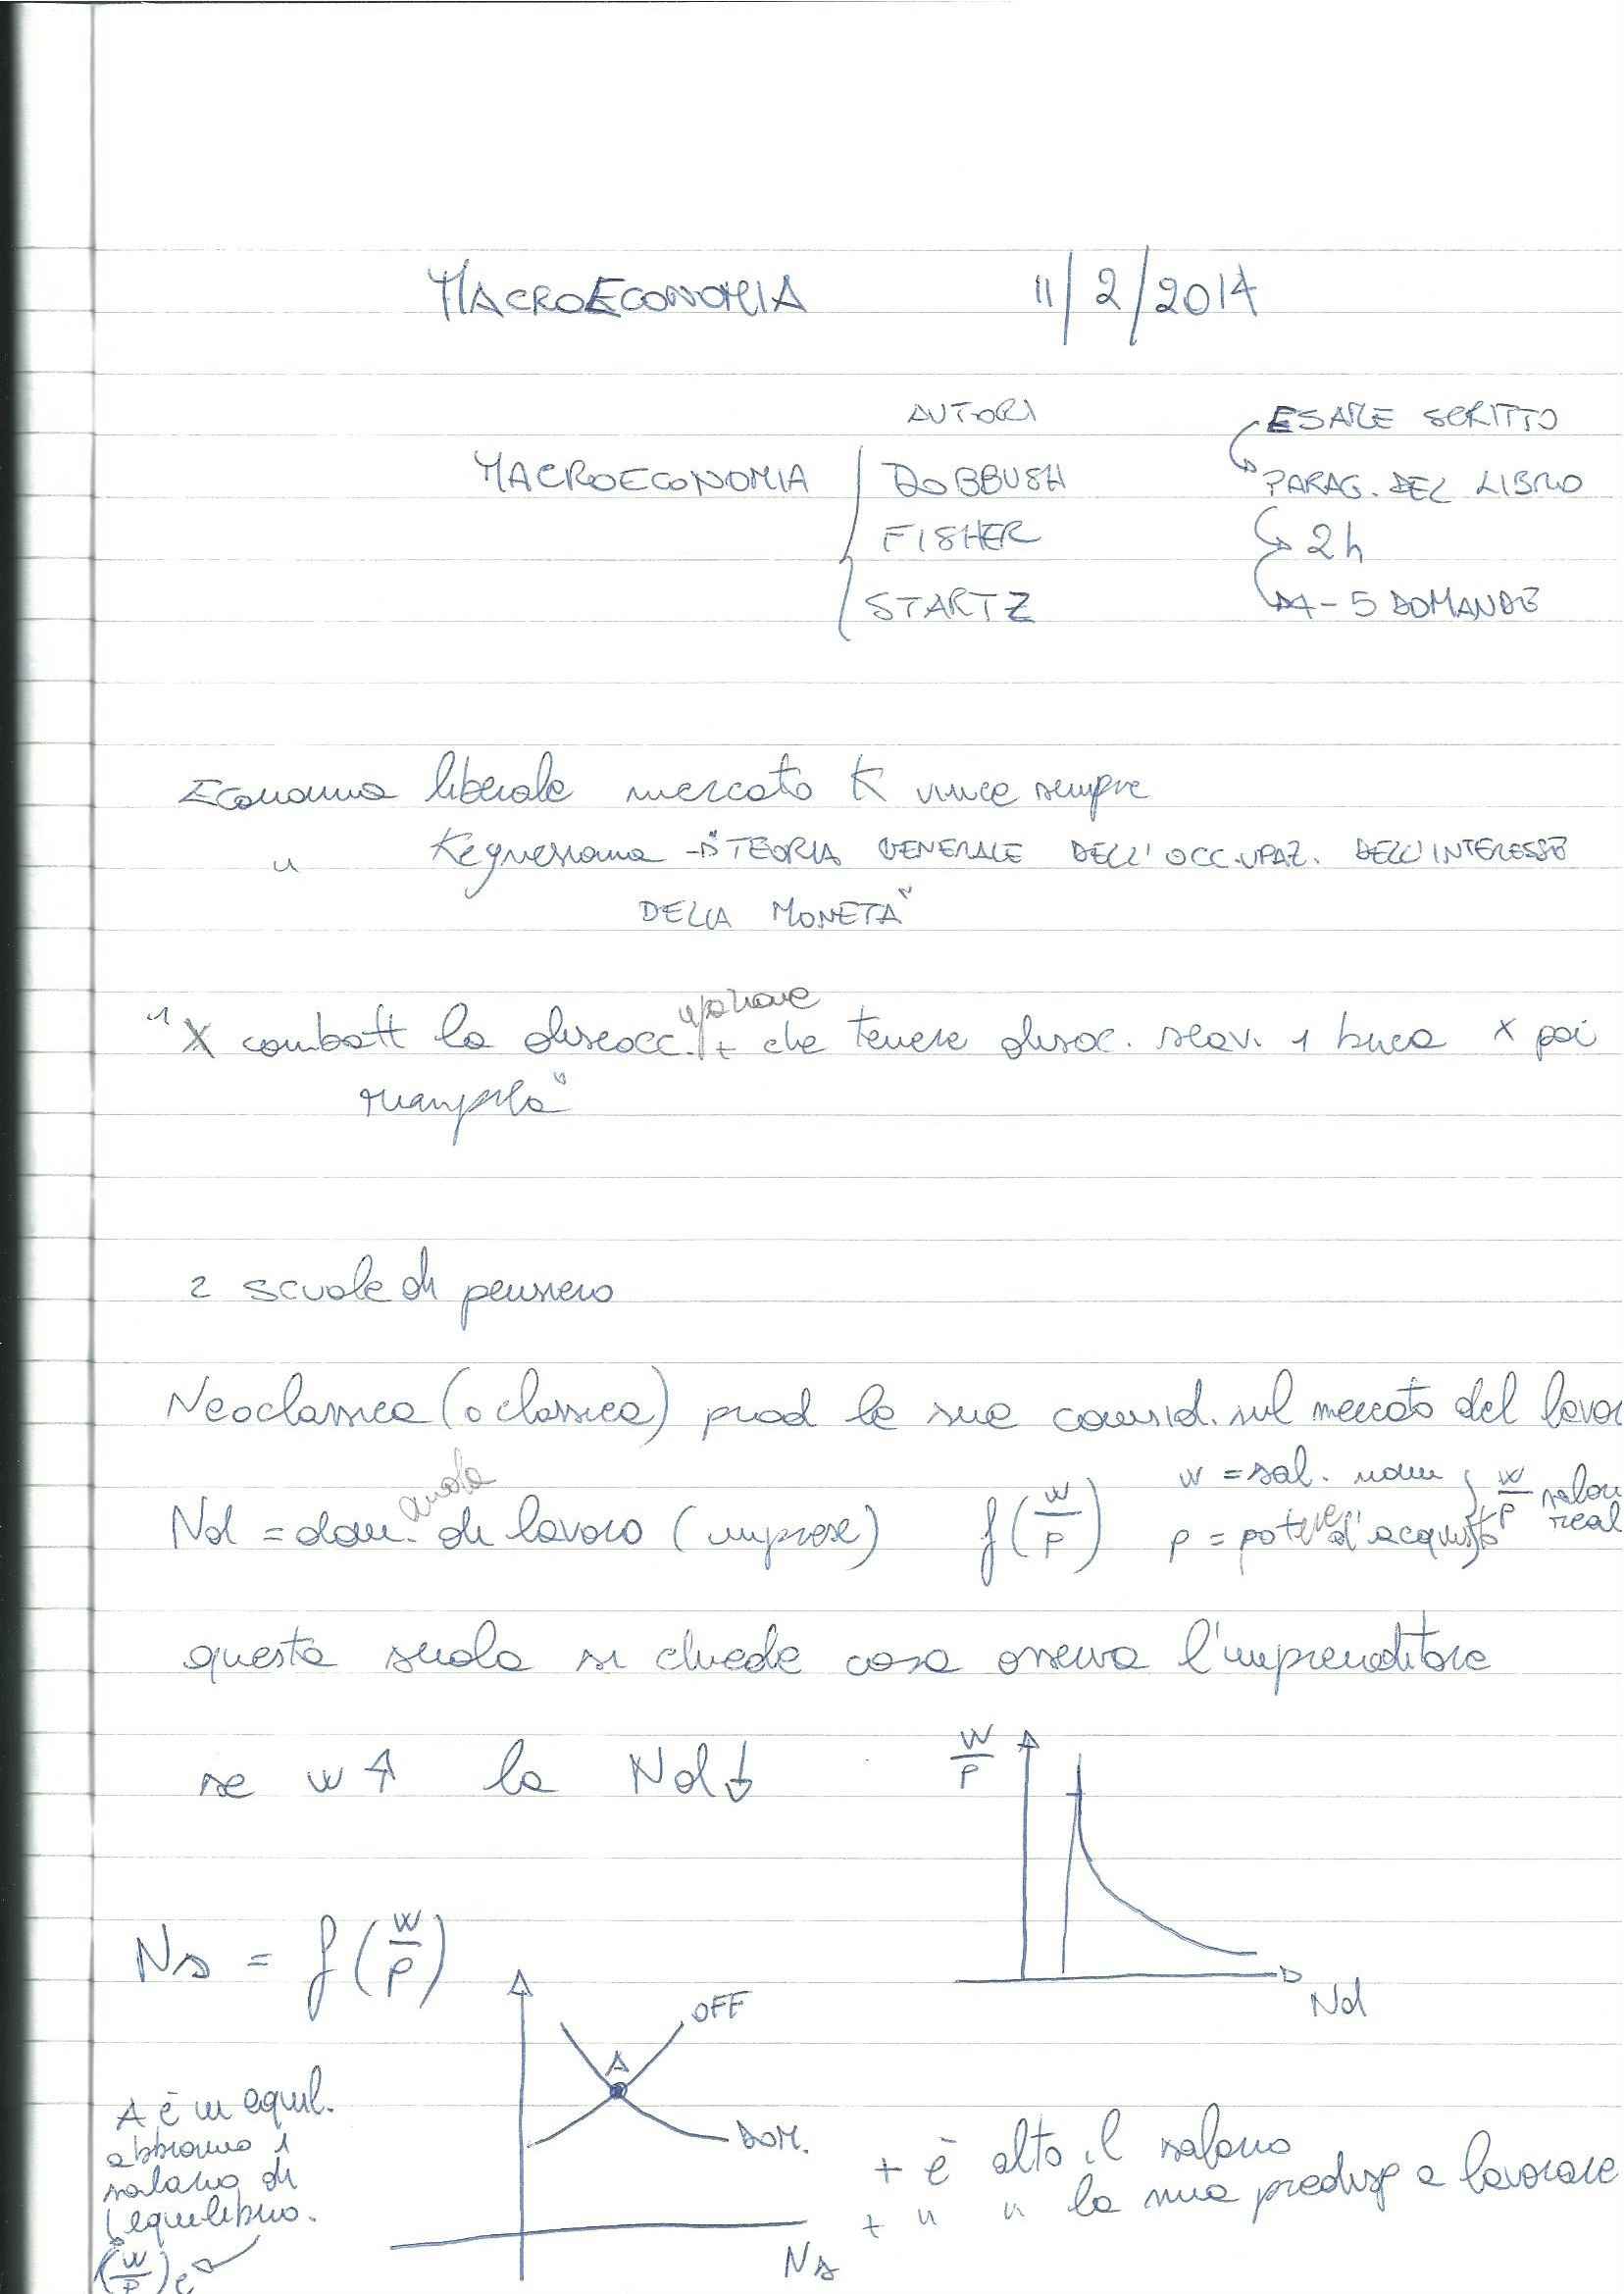 MACROECONOMIA 11/2/2014
AUTORI
MACROECONOMIA
DOBBUSH
FISHER
STARTZ
ESAME SCRITTO
PARAG. DEL LIBRO
2h
4-5 DOMANDE
Economia liberale mercato K vince sempre
" Keynesiana → "TEORIA GENERALE DELL'OCCUPAZ. DELL'INTERESSE
DELLA MONETA"
"X combatt la disocc. + che tenere disoc. scav. 1 buca x poi
riempirla"
2 scuole di pensiero
Neoclassica (o classica) prod le sue consid. sul mercato del lavor
Nd = dom. di lavoro (imprese) f(w/p)
w = sal. nom
p = potere d'acquisto
w/p salario real
questa scuola si chiede cosa osserva l'imprenditore
se w ↑ la Nd ↓
w/p
Nd
Ns = f(w/p)
OFF
A
DOM.
Ns
A è in equil.
abbiamo 1
salario di
equilibrio.
(w/p)e
+ è alto il salario
+ " " la mia predisp a lavorare